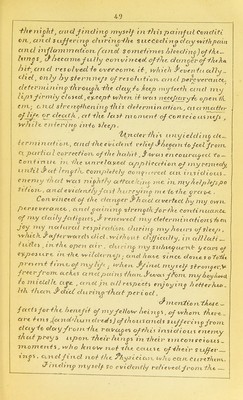 49
the night, and finding myself in this painful conditi
on, and suffering during the succeeding day with pain
and inflammation (and sometimes bleeding) of the
lungs, I became fully convinced of the danger of the ha
bit, and resolved to overcome it, which I eventually
did, only by sternness of resolution and perseverance,
determining through the day to keep my teeth and my
lips firmly closed, except when it was necessary to open th
em; and strengthening this determination, as a matter
of life or death, at the last moment of consciousness,
while entering into sleep.
Under this unyielding de-
termination, and the evident relief I began to feel from
a partial correction of the habit, I was encouraged to
continue in the unrelaxed application of my remedy,
until I at length completely conquered an insidious
enemy that was nightly attacking me in my helpless po
sition, and evidently fast hurrying me to the grave.
Convinced of the danger I had averted by my own
perseverance, and gaining strength for the continuance
of my daily fatigues, I renewed my determinations to en
joy my natural respiration during my hours of sleep,
which I afterwards did, without difficulty, in all lati-
tudes, in the open air, during my subsequent years of
exposure in the wilderness; and have since done so to the
present time of my life; when I find myself stronger, &
freer from aches and pains than I was from my boyhood
to middle age, and in all respects enjoying better hea
lth than I did during that period.
I mention these
facts for the benefit of my fellow beings, of whom there
are tens (and hundreds) of thousands suffering from
day to day from the ravages of this insidious enemy
that preys upon their lungs in their unconscious
moments, who know not the cause of their suffer-
ings, and find not the Physician who can cure them.
Finding myself so evidently relieved from the